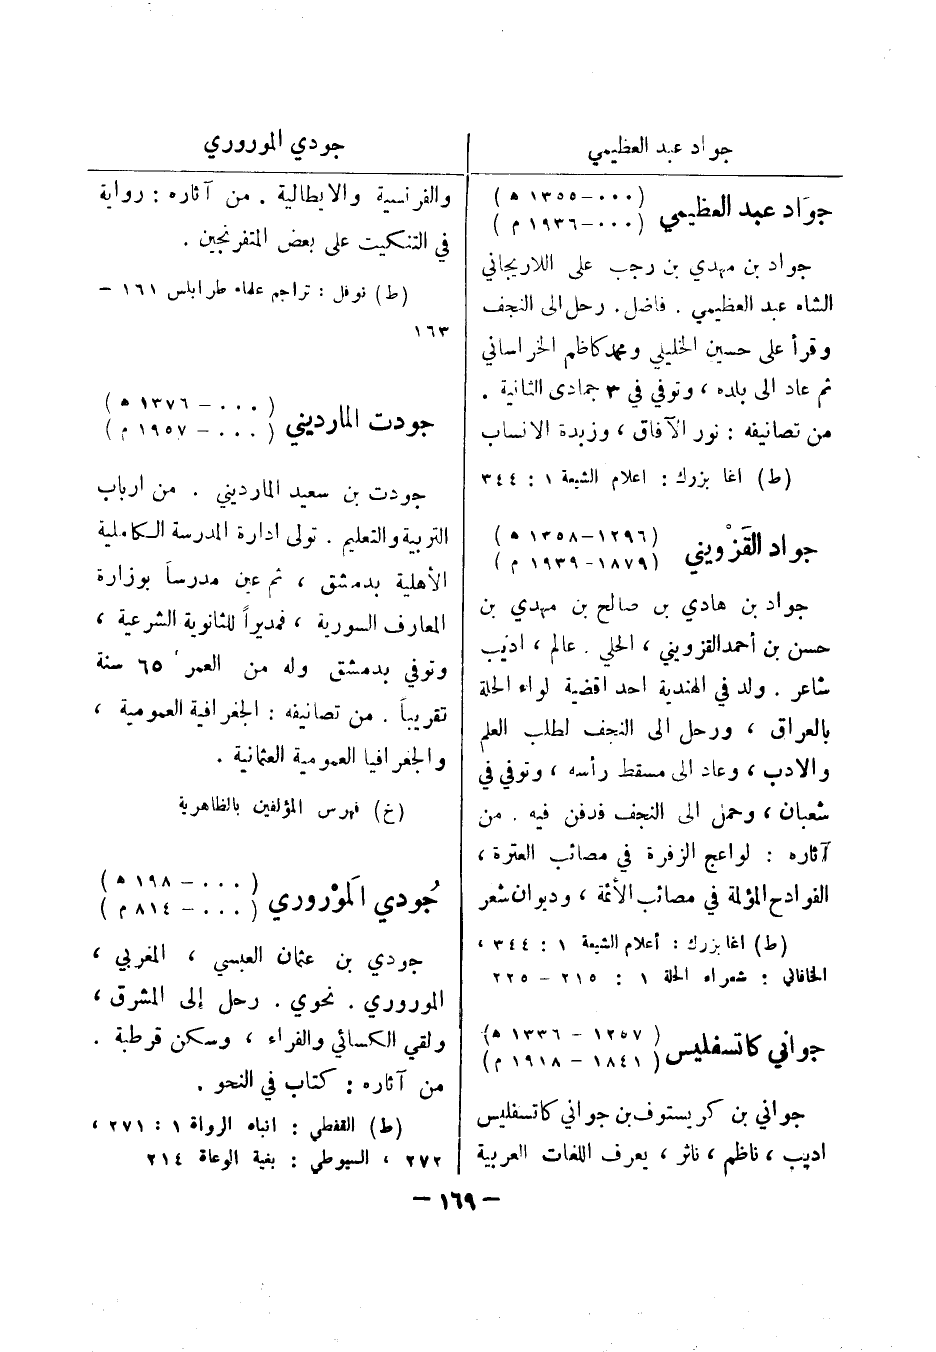 جواد عبد العظيمي
جودي الموروري
جوَاد عبد العظيمي (٠٠٠-١٣٥٥ ه)
(٠٠٠-١٩٣٦ م)
جواد بن مهدي بن رجب على اللاريجاني
الشاه عبد العظيمي . فاضل . رحل الى النجف
وقرأ على حسين الخليلي ومحمد كاظم الخراساني
ثم عاد الى بلده ، وتوفي في ٣ جمادى الثانية .
من تصانيفه : نور الآفاق ، وزبدة الانساب
(ط) اغا بزرك : اعلام الشيعة ١ : ٣٤٤
جواد القَزْويني (١٢٩٦-١٣٥٨ ه)
(١٨٧٩-١٩٣٩ م)
جواد بن هادي بن صالح بن مهدي بن
حسن بن أحمد القزويني ، الحلي . عالم ، اديب
شاعر . ولد في الهندية احد اقضية لواء الحلة
بالعراق ، ورحل الى النجف لطلب العلم
والادب ، وعاد الى مسقط رأسه ، وتوفي في
شعبان ، وحمل الى النجف فدفن فيه . من
آثاره : لواعج الزفرة في مصائب العترة ،
الفوادح المؤلمة في مصائب الأئمة ، وديوان شعر
(ط) اغا بزرك : أعلام الشيعة ١ : ٣٤٤ ،
الخاقاني : شعراء الحلة ١ : ٢١٥ - ٢٢٥
جواني كاتسفليس (١٢٥٧ - ١٣٣٦ ه)
(١٨٤١ - ١٩١٨ م)
جواني بن كريستوف بن جواني كاتسفليس
اديب ، ناظم ، ناثر ، يعرف اللغات العربية
والفرنسية والايطالية . من آثاره : رواية
في التنكيت على بعض المتفرنجين .
(ط) نوفل : تراجم علماء طرابلس ١٦١ -
١٦٣
جودت المارديني (٠٠٠ - ١٣٧٦ ه)
(٠٠٠ - ١٩٥٧ م)
جودت بن سعيد المارديني . من ارباب
التربية والتعليم . تولى ادارة المدرسة الكاملية
الأهلية بدمشق ، ثم عين مدرساً بوزارة
المعارف السورية ، فمديراً للثانوية الشرعية ،
وتوفي بدمشق وله من العمر ٦٥ سنة
تقريباً . من تصانيفه : الجغرافية العمومية ،
والجغرافيا العمومية العثمانية .
(خ) فهرس المؤلفين بالظاهرية
جُودي المَوْروري (٠٠٠ - ١٩٨ ه)
(٠٠٠ - ٨١٤ م)
جودي بن عثمان العبسي ، المغربي ،
الموروري . نحوي . رحل إلى المشرق ،
ولقي الكسائي والفراء ، وسكن قرطبة .
من آثاره : كتاب في النحو .
(ط) القفطي : انباه الرواة ١ : ٢٧١ ،
٢٧٢ ، السيوطي : بغية الوعاة ٢١٤
- ١٦٩ -